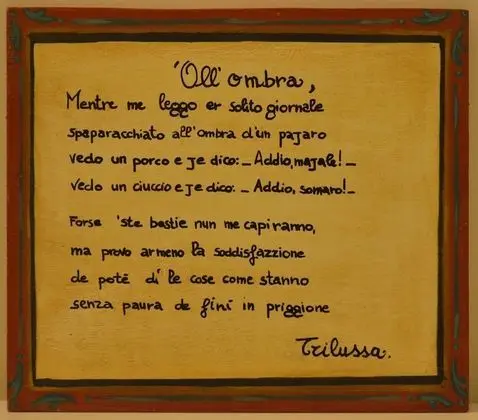 'Oll' ombra,
Mentre me leggo er solito giornale
spaparacchiato all'ombra d'un pajaro
vedo un porco e je dico: _ Addio, majale! _
vedo un ciuccio e je dico: _ Addio, somaro! _
Forse 'ste bestie nun me capiranno,
ma provo armeno la soddisfazzione
de potè dì le cose come stanno
senza paura de finì in priggione
Trilussa.